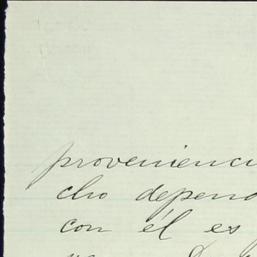 provenienci
cho depend
con él es